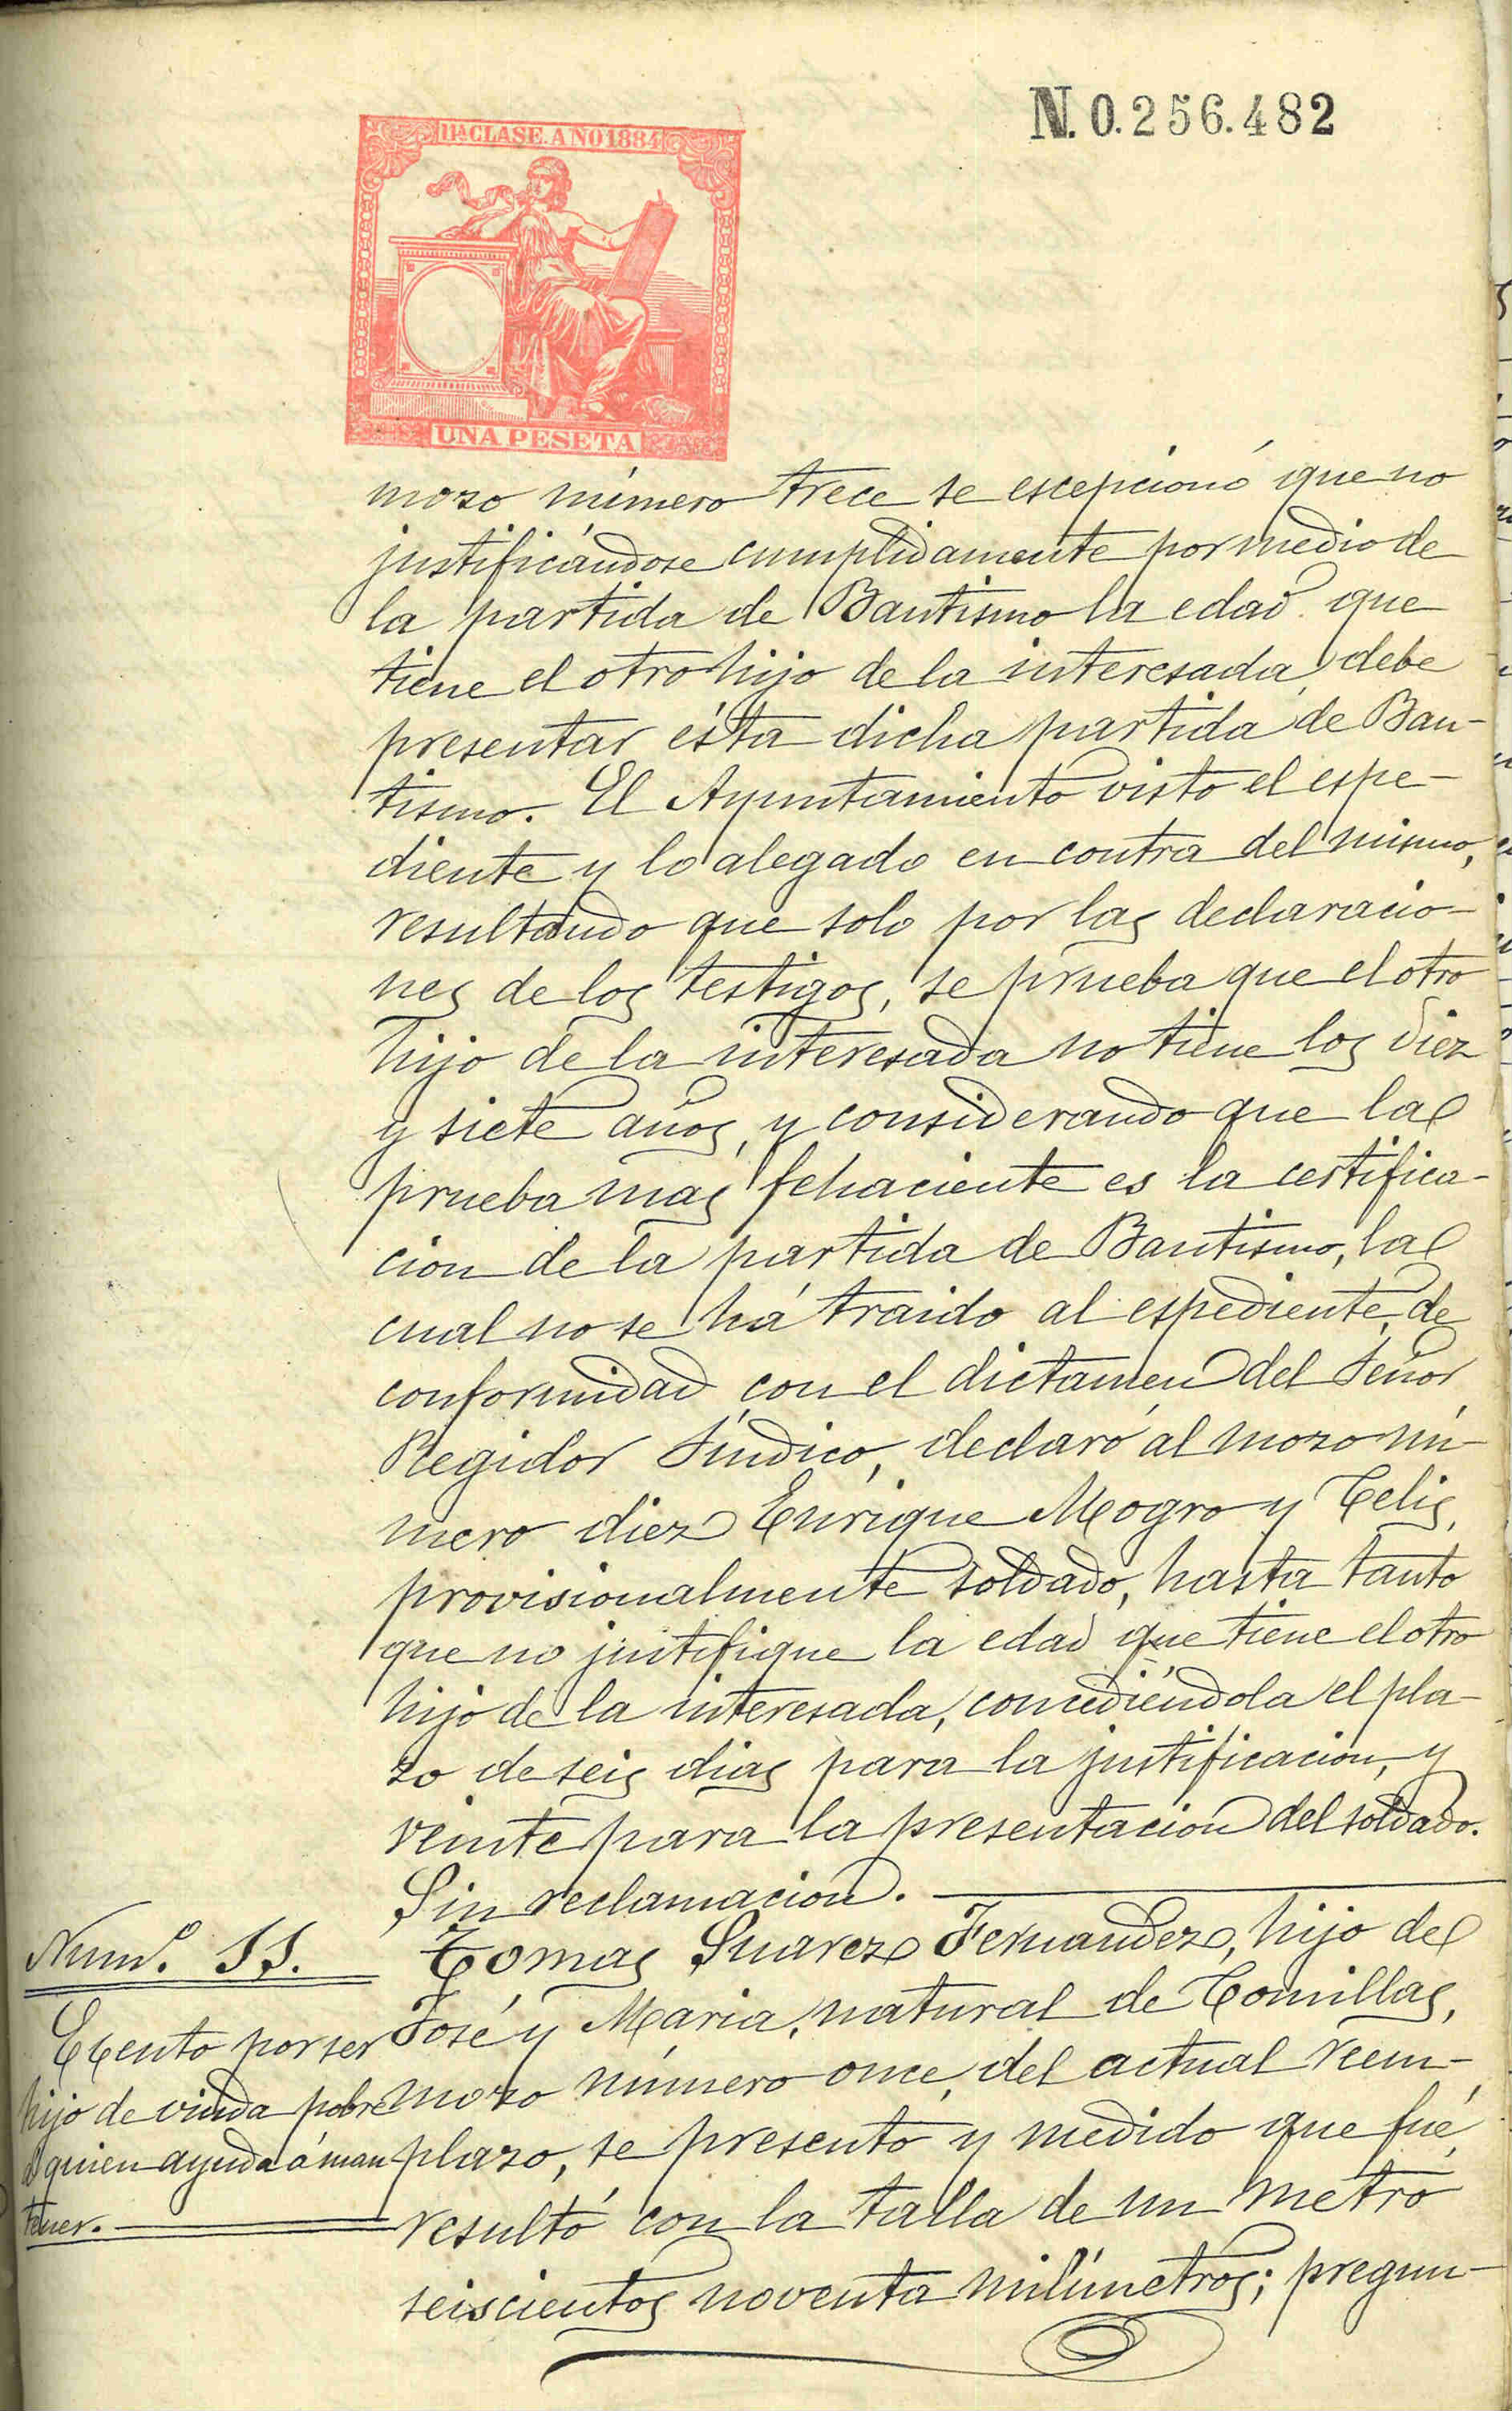 N. 0.256.482
11ª CLASE. AÑO 1884
UNA PESETA
mozo número trece se escepcionó que no
justificándose cumplidamente por medio de
la partida de Bautismo la edad que
tiene el otro hijo de la interesada, debe
presentar ésta dicha partida de Bau-
tismo. El Ayuntamiento visto el espe-
diente y lo alegado en contra del mismo,
resultando que solo por las declaracio-
nes de los testigos, se prueba que el otro
hijo de la interesada no tiene los diez
y siete años, y considerando que la
prueba mas fehaciente es la certifica-
cion de la partida de Bautismo, la
cual no se há traido al espediente, de
conformidad con el dictámen del Señor
Regidor Síndico, declaró al mozo nú-
mero diez Enrique Mogro y Celis,
provisionalmente soldado, hasta tanto
que no justifique la edad que tiene el otro
hijo de la interesada, concediéndola el pla-
zo de seis dias para la justificacion, y
veinte para la presentacion del soldado.
Sin reclamacion.
Num.º 11.
Excento por ser
hijo de viuda pobre
á quien ayuda á man
tener.
Tomas Suarez Fernandez, hijo de
José y Maria, natural de Comillas,
mozo número once, del actual reem-
plazo, se presentó y medido que fué,
resultó con la talla de un metro
seiscientos noventa milímetros; pregun-